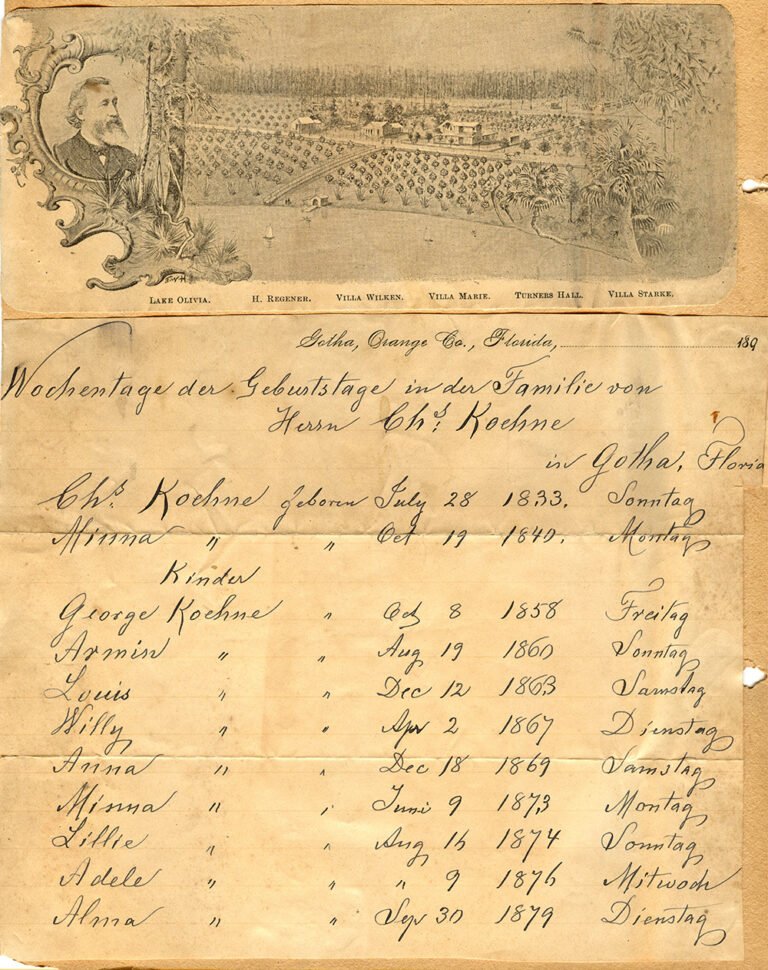 LAKE OLIVIA. H. REGENER. VILLA WILKEN. VILLA MARIE. TURNERS HALL. VILLA STARKE.
Gotha, Orange Co., Florida, 189
Wochentage der Geburtstage in der Familie von
Herrn Chs. Koehne
in Gotha, Floria
Chs. Koehne geboren July 28 1833. Sonntag
Minna " " Oct 19 1840. Montag
Kinder
George Koehne " Oct 8 1858 Freitag
Armin " " Aug 19 1860 Sonntag
Louis " " Dec 12 1863 Samstag
Willy " " Apr 2 1867 Dienstag
Anna " " Dec 18 1869 Samstag
Minna " " Juni 9 1873 Montag
Lillie " " Aug 16 1874 Sonntag
Adele " " " 9 1876 Mitwoch
Alma " " Sep 30 1879 Dienstag